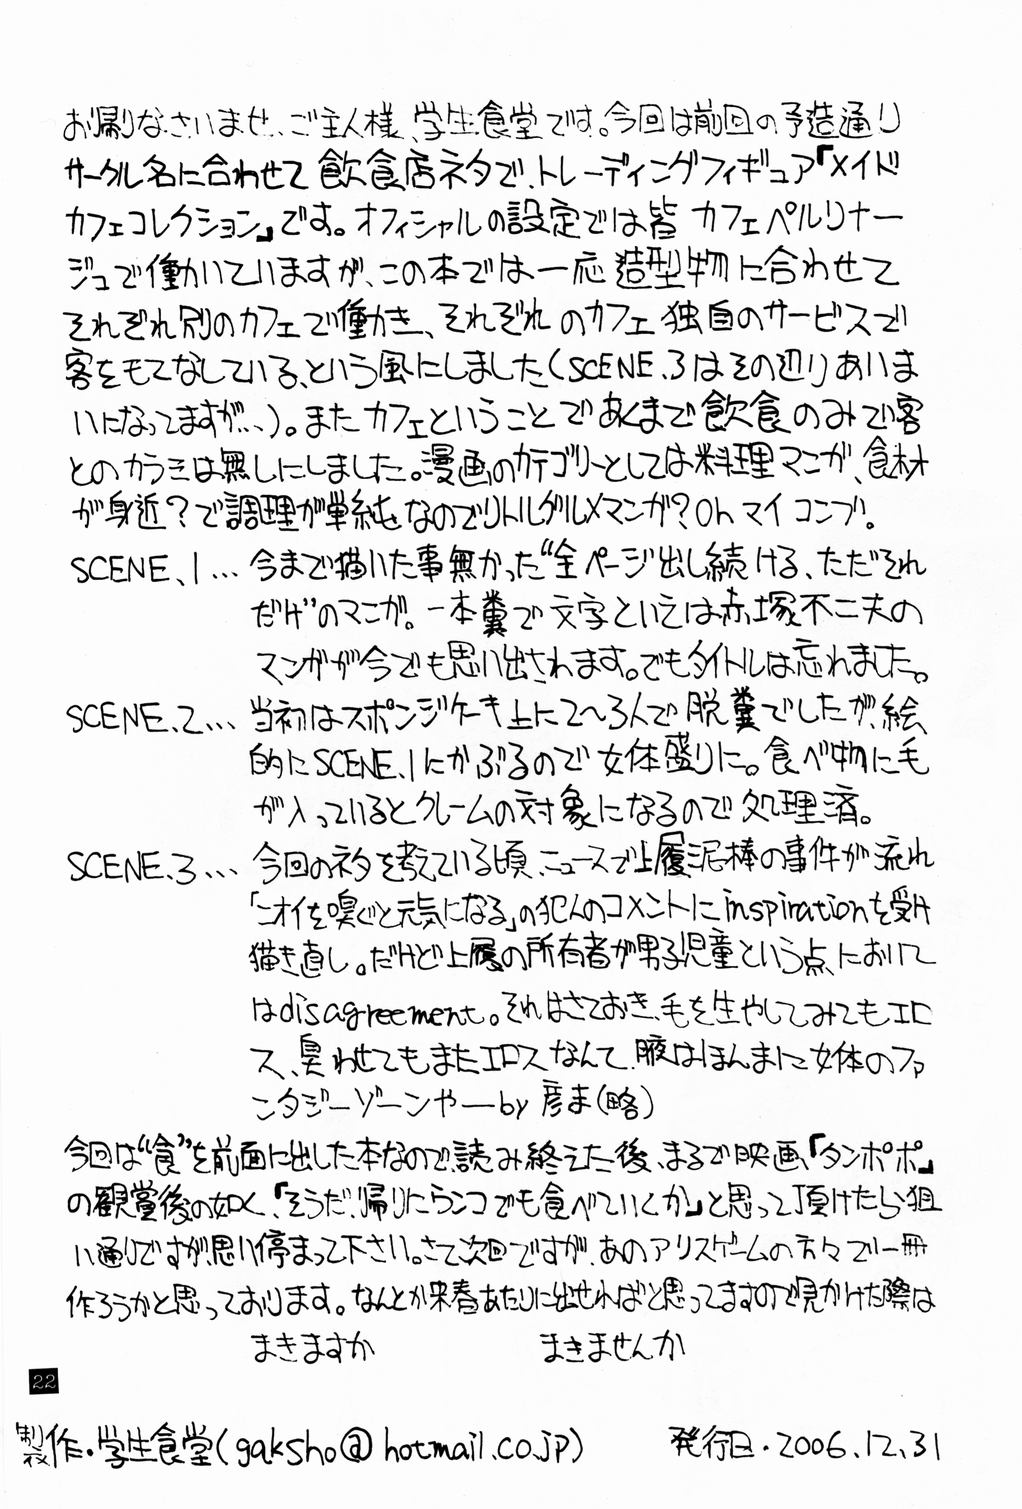 お帰りなさいませ、ご主人様、学生食堂です。今回は前回の予造通り
サークル名に合わせて飲食店ネタで、トレーディングフィギュア『メイド
カフェコレクション』です。オフィシャルの設定では皆カフェペルリナー
ジュで働いていますが、この本では一応造型物に合わせて
それぞれ別のカフェで働き、それぞれのカフェ独自のサービスで
客をもてなしている、という風にしました(SCENE.3はその辺りあいま
いになってますが…)。またカフェということであくまで飲食のみで客
とのカラミは無しにしました。漫画のカテゴリーとしては料理マンガ、食材
が身近?で調理が単純なのでリトルグルメマンガ?Ohマイコンブ。
SCENE.1… 今まで描いた事無かった“全ページ出し続ける、ただそれ
だけ”のマンガ。一本糞で文字といえば赤塚不二夫の
マンガが今でも思い出されます。でもタイトルは忘れました。
SCENE.2… 当初はスポンジケーキ上に2〜3人で脱糞でしたが、絵
的にSCENE.1にかぶるので女体盛りに。食べ物に毛
が入っているとクレームの対象になるので処理済。
SCENE.3… 今回のネタを考えている頃、ニュースで上履泥棒の事件が流れ
「ニオイを嗅ぐと元気になる」の犯人のコメントにinspirationを受け
描き直し。だけど上履の所有者が男子児童という点、において
はdisagreement。それはさておき、毛を生やしてみてもエロ
ス、臭わせてもまたエロスなんて、腋はほんまに女体のファ
ンタジーゾーンやーby 彦ま(略)
今回は“食”を前面に出した本なので、読み終えた後、まるで映画、『タンポポ』
の観賞後の如く、『そうだ、帰りにウンコでも食べていくか』と思って頂けたら狙
い通りですが、思い停まって下さい。さて次回ですが、あのアリスゲームの方々で一冊
作ろうかと思っております。なんとか来春あたりに出せればと思ってますので見かけた際は
まきますか まきませんか
22
製作・学生食堂(gaksho@hotmail.co.jp) 発行日・2006.12.31